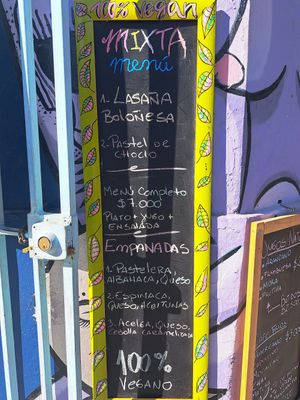 100% Vegan
MIXTA
menú
1- LASAÑA
BOLOÑESA
2- PASTEL DE
CHOCLO
MENÚ COMPLETO
$7.000
PLATO + JUGO +
ENSALADA
EMPANADAS
1. PASTELERA,
ALBAHACA, QUESO
2. ESPINACA,
QUESO, ACEITUNAS
3. ACELGA, QUESO,
CEBOLLA CARAMELIZADA
100%
VEGANO
JUGOS
ARANDANO
FRAMBUESA
MORA
FRUTILLA